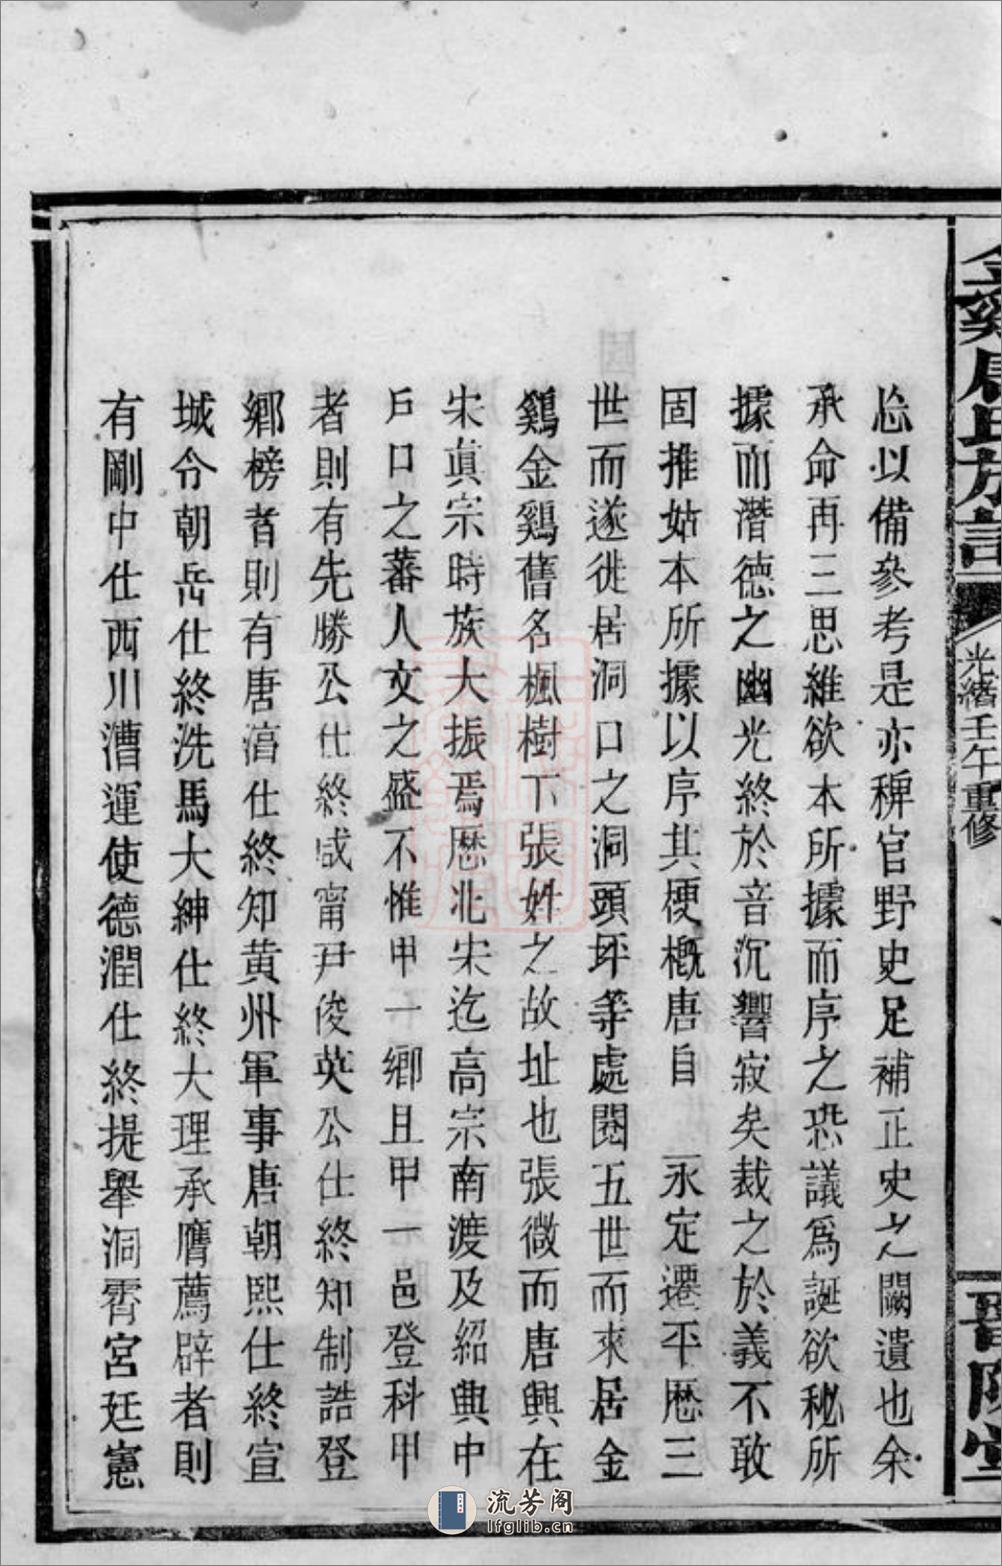 金鷄唐氏族譜
光緒壬午重修
晉陽堂
忘以備參考是亦稗官野史足補正史之闕遺也余
承命再三思維欲本所據而序之恐議爲誕欲秘所
據而潛德之幽光終於音沉響寂矣裁之於義不敢
固推姑本所據以序其梗概唐自 永定遷平厯三
世而遂徙居洞口之洞頭坪等處閱五世而來居金
鷄金鷄舊名楓樹下張姓之故址也張微而唐興在
宋眞宗時族大振焉厯北宋迄高宗南渡及紹興中
戶口之蕃人文之盛不惟甲一鄉且甲一邑登科甲
者則有先勝公仕終咸甯尹俊英公仕終知制誥登
鄉榜者則有唐淯仕終知黄州軍事唐朝熙仕終宣
城令朝岳仕終洗馬大紳仕終大理承膺薦辟者則
有剛中仕西川漕運使德潤仕終提舉洞霄宮廷憲
流芳阁
lfglib.cn